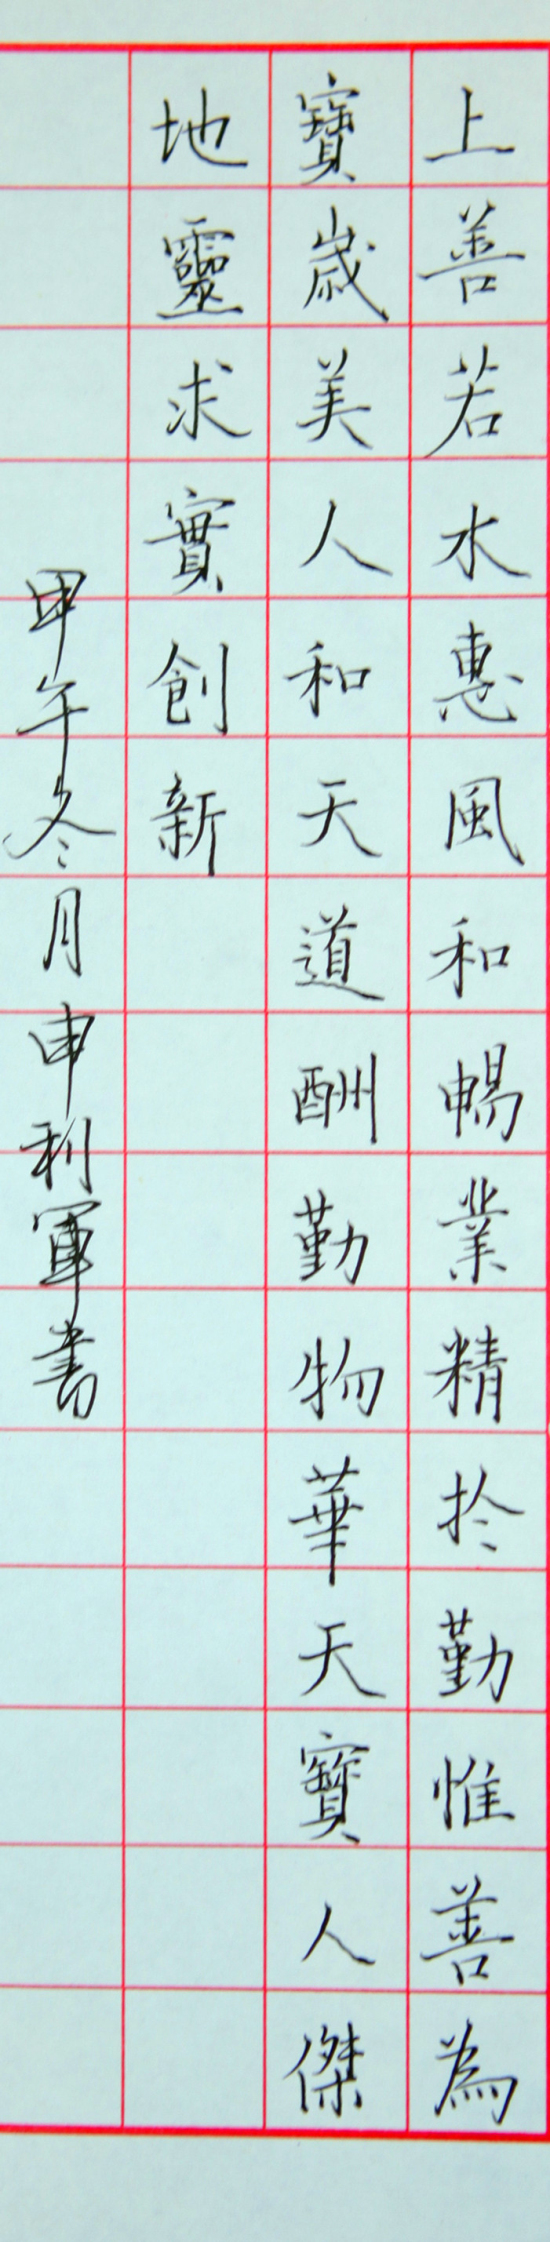 上善若水惠風和暢業精於勤惟善為
寶歲美人和天道酬勤物華天寶人傑
地靈求實創新
甲午冬月申利軍書